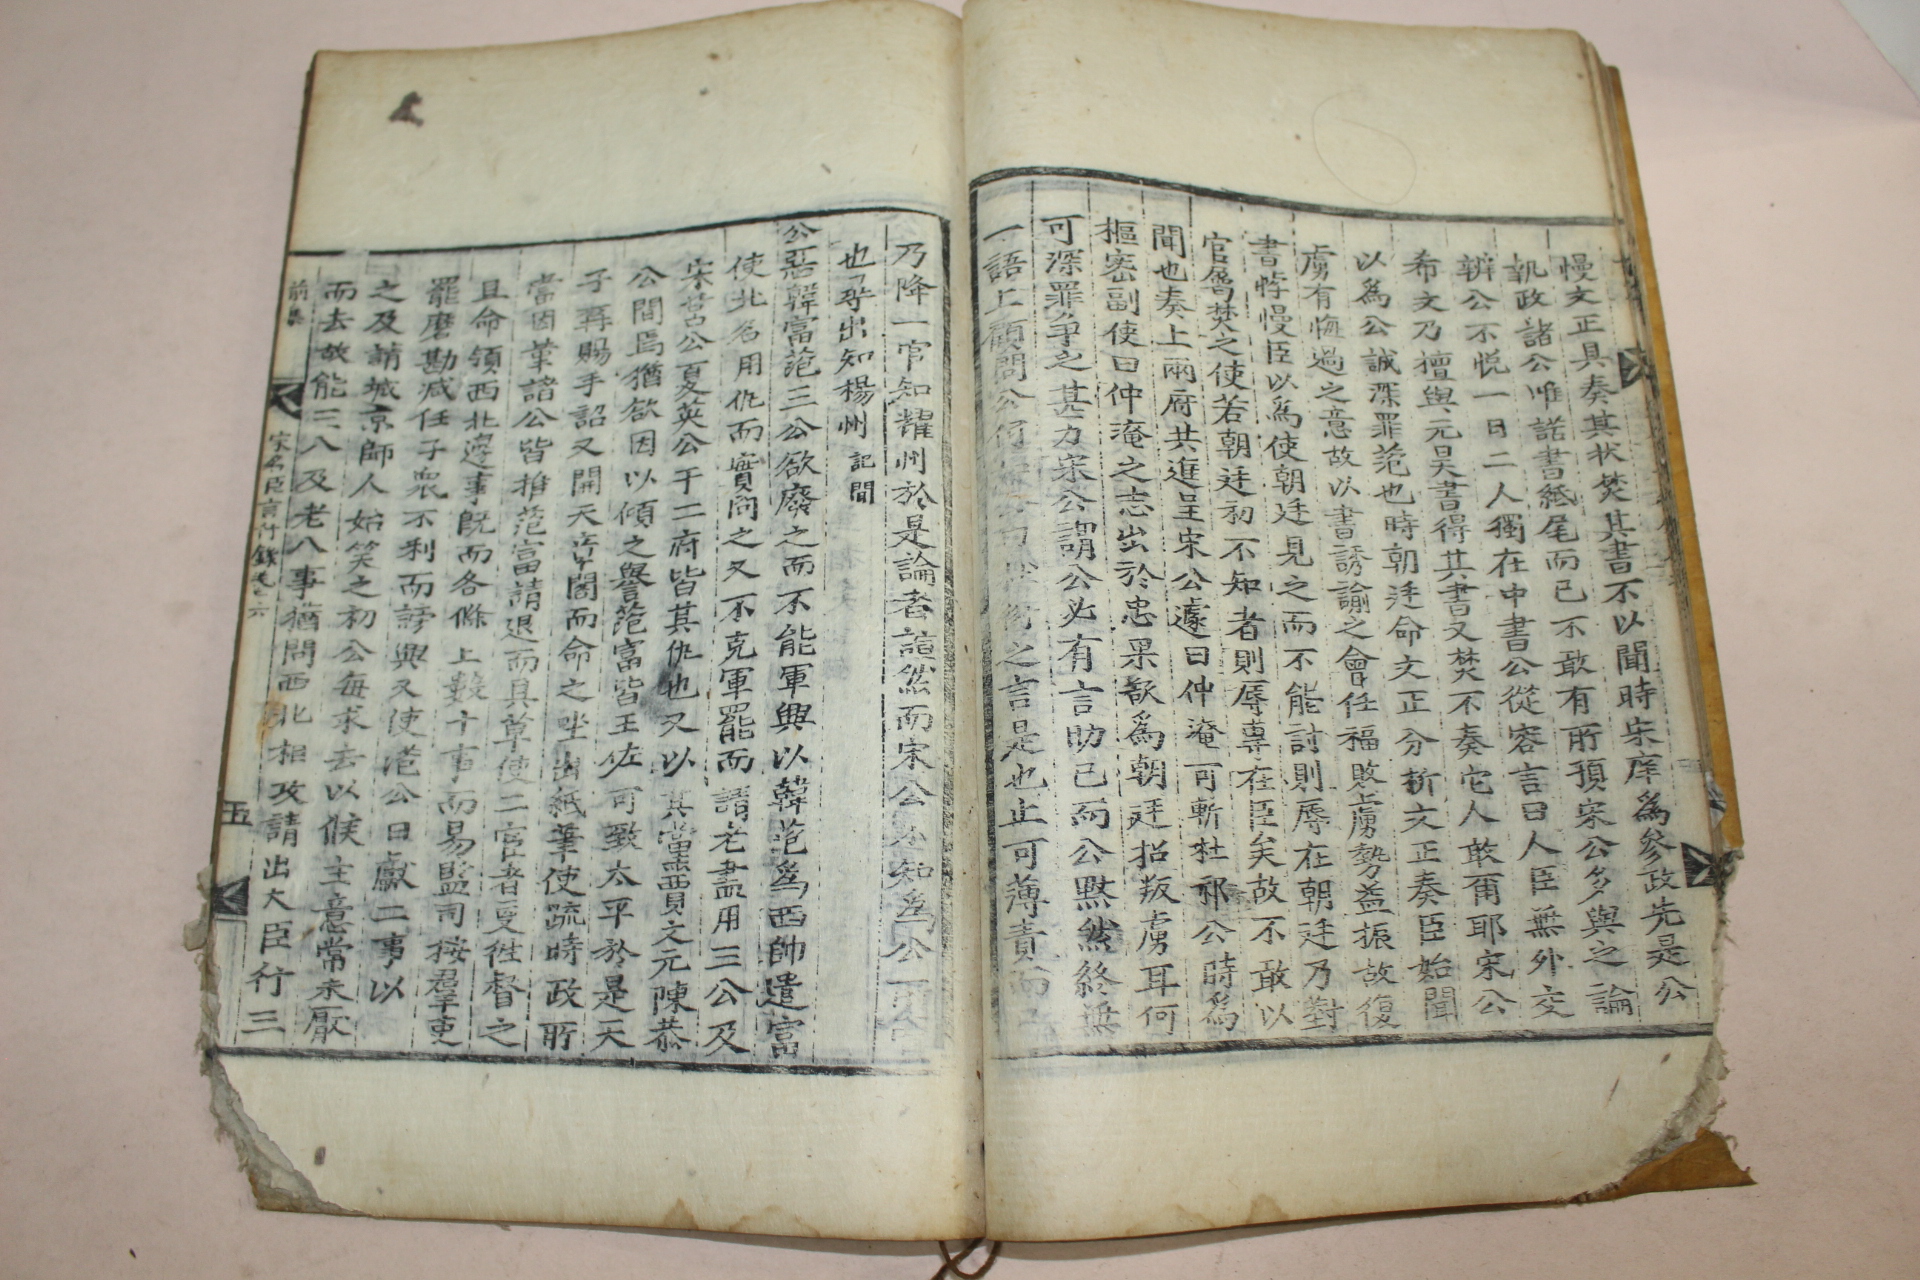 慢文正具奏其状焚其書不以聞時宋庠為參政先是公
執政諸公唯諾書紙尾而已不敢有所預宋公多與之論
辨公不悦一日二人獨在中書公從容言曰人臣無外交
希文乃擅與元昊書得其書又焚不奏它人敢爾耶宋公
以為公誠深罪范也時朝廷命文正分析文正奏臣始聞
虜有悔過之意故以書誘諭之會任福敗虜勢益振故復
書悖慢臣以為使朝廷見之而不能討則辱在朝廷乃對
官属焚之使若朝廷初不知者則辱專在臣矣故不敢以
聞也奏上兩府共進呈宋公遽曰仲淹可斬杜祁公時為
樞密副使曰仲淹之志出於忠果欲為朝廷招叛虜耳何
可深罪争之甚力宋公謂公必有言助己而公黙然終無
一語上顧問公何如公曰杜衍之言是也止可薄責而已
乃降一官知耀州於是論者諠然而宋公不知為公所
也尋出知楊州 記聞
公惡韓富范三公欲廢之而不能軍興以韓范為西帥遣富
使北名用仇而實間之又不克軍罷而請老盡用三公及
宋莒公夏英公于二府皆其仇也又以其黨賈文元陳恭
公間焉猶欲因以傾之譽范富皆王佐可致太平於是天
子再賜手詔又開天章閣而命之坐出紙筆使疏時政所
當因革諸公皆推范富請退而具草使二官者更往督之
且命領西北邊事既而各條上數十事而易監司按羣吏
罷磨勘减任子衆不利而謗興又使范公日獻二事以
之及請城京師人始笑之初公每求去以候主意常未厭
而去故能三入及老八事猶問西北相攻請出大臣行三
前集
宋名臣言行録卷六
五